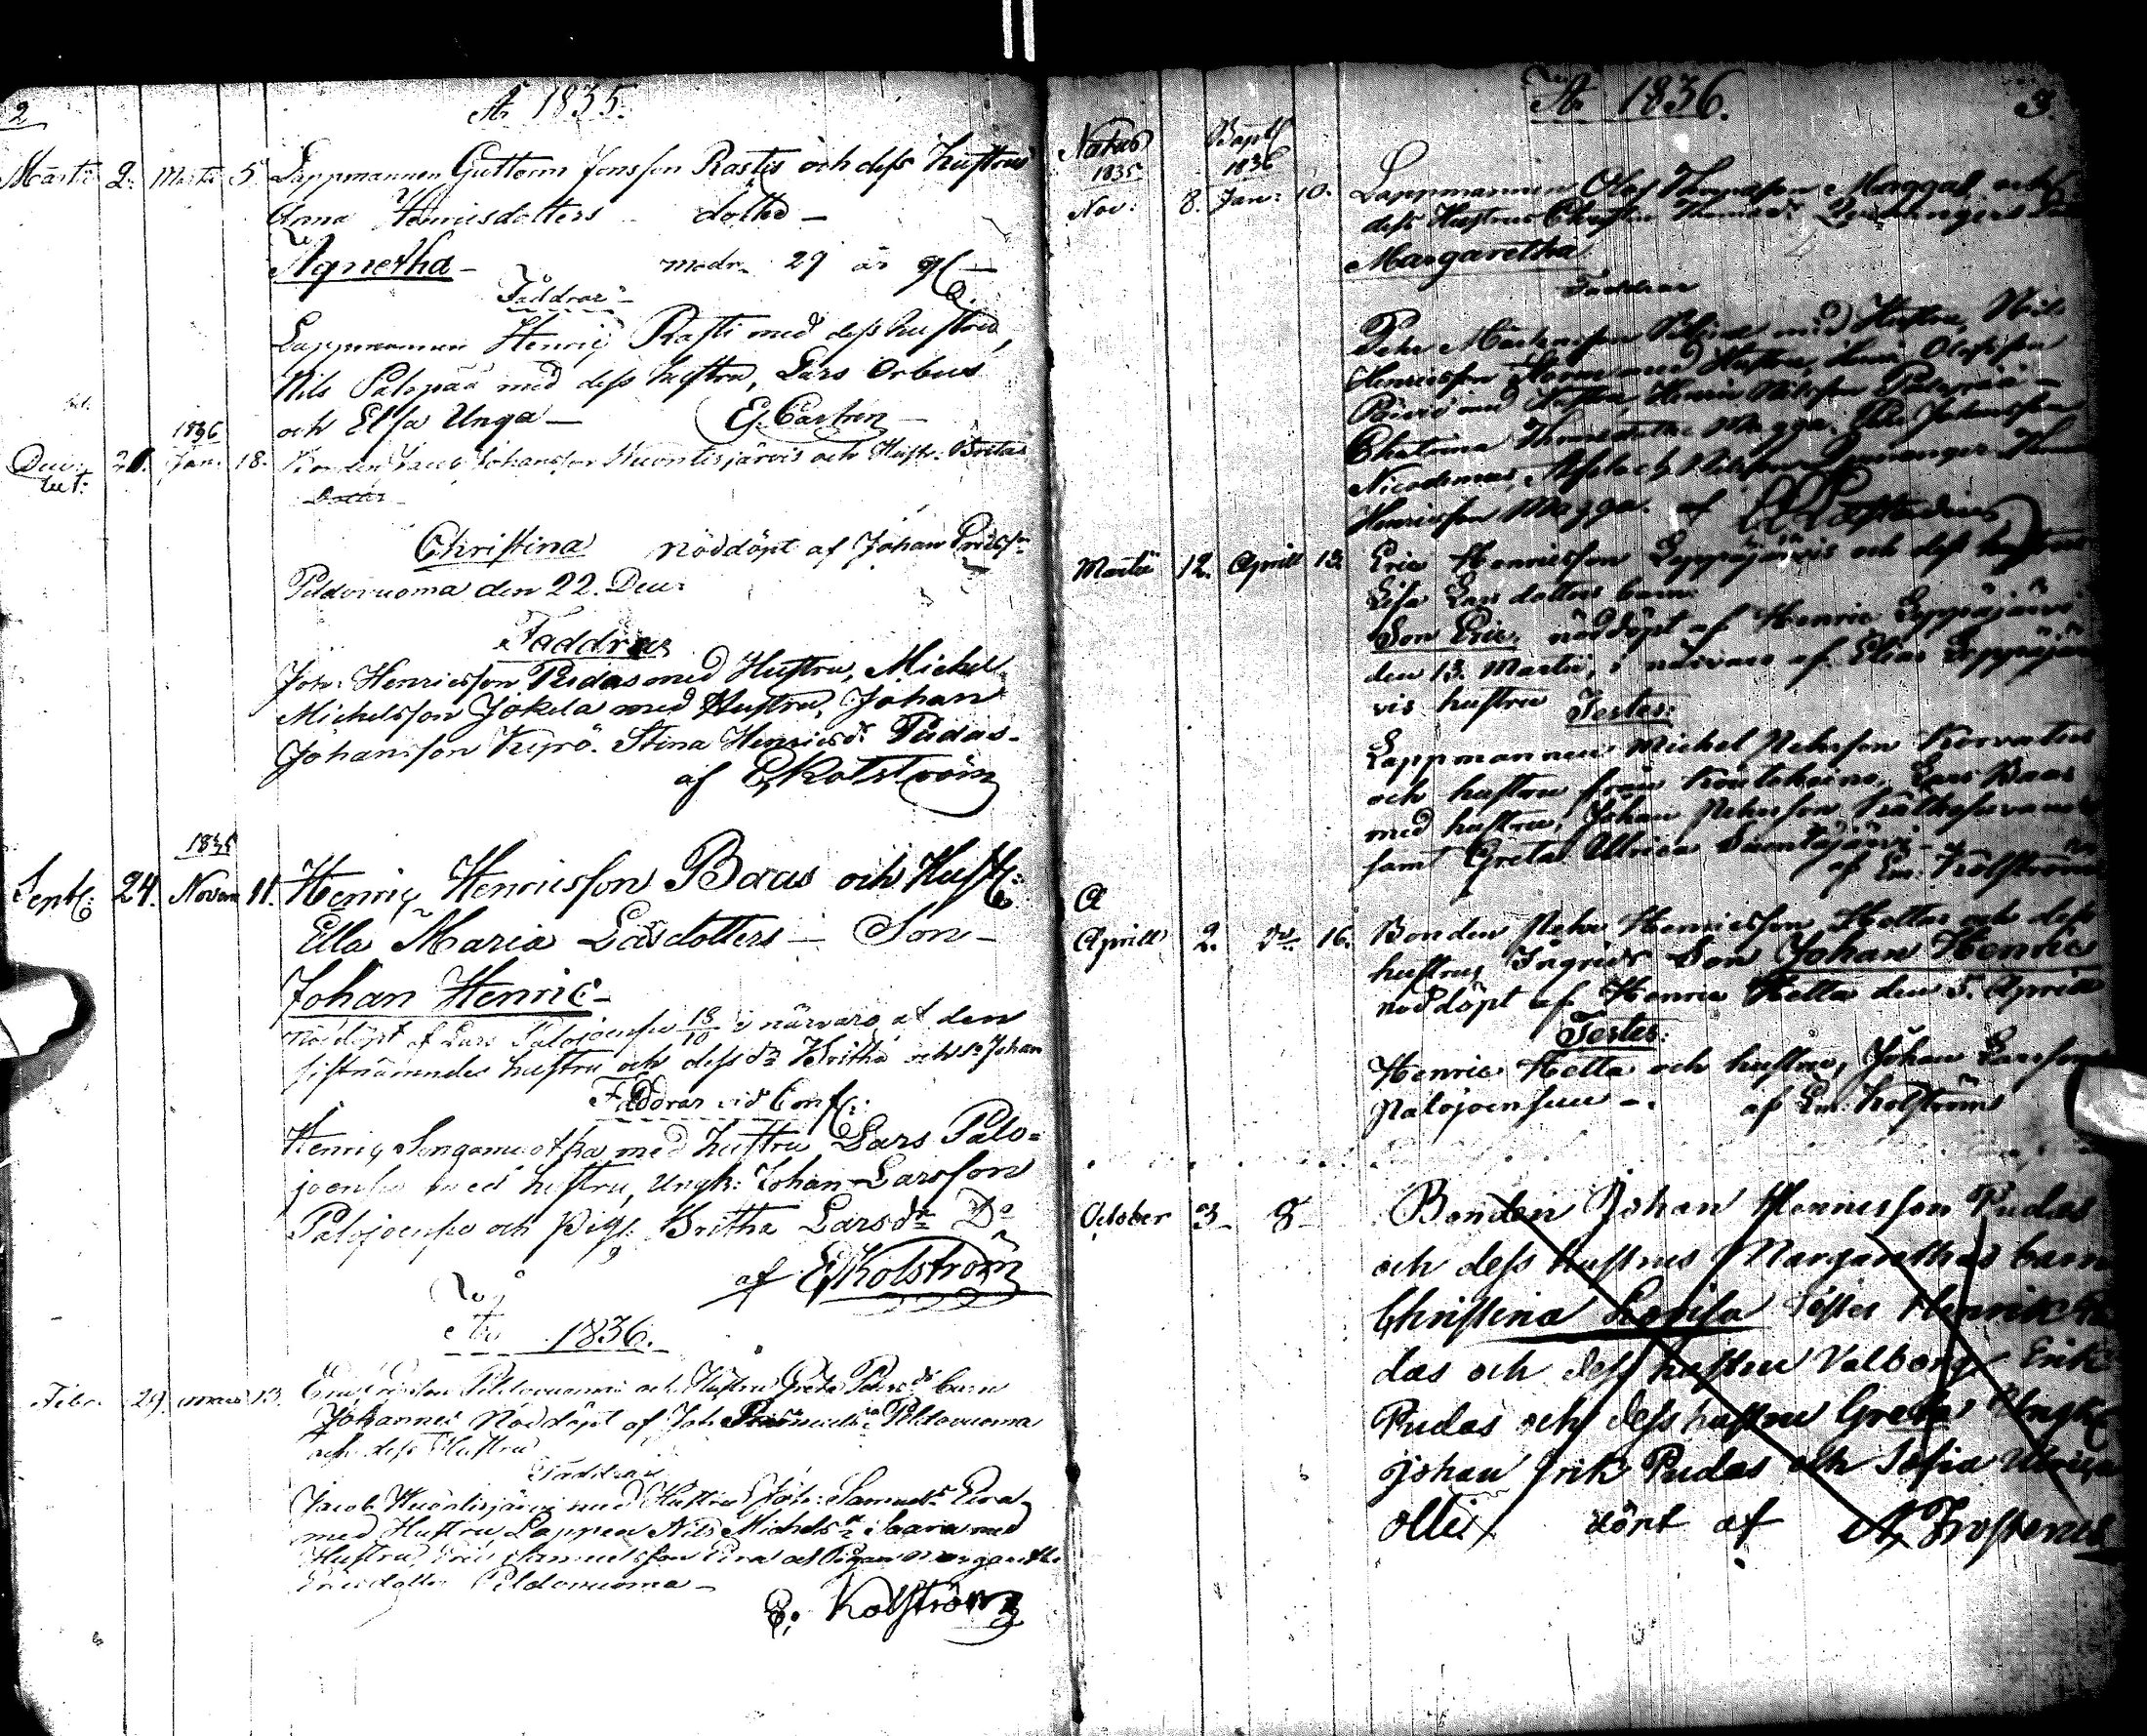 2
Åo 1835.
Martii 2. Martii 5. Lappmannen Guttorm Jonsson Rastis och dess hustrus
Anna Henricsdotters dotter –
Agnetha – modr. 29 år gl –
Faddrar –
Lappmannen Henric Rasti med dess hustru,
Nils Palopää med dess hustru, Lars Orbus
och Elsa Unga – Ej. Castren –
1836
Dec: 21. Jan: 18. Bonden Jacob Johansson Kuontisjärvis och Hustr: Britas
Christina nöddöpt af Johan Ericss:
Peldovuoma den 22. Dec:
Faddrar
Joh: Henricsson Pudas med Hustru, Michel
Michelsson Jokela med Hustru, Johan
Johansson Kyrö. Stina Henricsdr Pudas –
af E Kolström
1835
Sept: 24. Novem 11. Henric Henricsson Baas och Hust:
Ella Maria Larsdotters – Son –
Johan Henric –
nöddöpt af Lars Palojoensu 18/10 i närvaro af den
sistnämndes hustru och dess dr Britha och sn Johan
Faddrar vid Conf:
Henric Songamuotka med hustru Lars Palo=
joensu med hustru, Ungk: Johan Larsson
Palojoensu och Pig: Britha Larsdr Do
af E Kolström
Åo 1836.
Febr. 29 mars 13. Eric Ericsson Peldovuoma och Hustru Greta Pehrsdr barn
Johannes Nöddöpt af Joh: Peldovuoma
och dess Hustru
Faddrar
Jacob Kuontisjärvi med Hustru Joh: Samuels: Eira
med Hustru Lappen Nils Michels: Saara med
Hustru, Eric Samuelsson Eira och Pigan Margaretha
Ericsdotter Peldovuoma –
E. Kolström
Åo 1836. 3.
Natus Bapt:
1835 1836
Nov: 8. Jan: 10. Lappmannen Olof Thomasson Maggas och
dess Hustrus
Margaretha
Faddrar
Pehr Mårtensson med Hustru, Nils
Henricsson med Hustru, Olofsson
Päiviö med Hustru, Henric Nilsson Palopää –
Chatrina Thomasdotter Magga,
Nicodemus, Aslach Nilsson
Henricsson Magga. af LLLæstadius
Martii 12. Aprill 13. Eric Henricsson Leppäjärvis och dess hustrus
Lisa Lars dotters barn
Son Eric, nöddöpt af Henric Leppäjärvi
den 13. Martii, i närvaro af Elias Leppäjär
vis hustru Testes:
Lappmannen Michel Pehrsson
och hustru från Koutokeino, Lars Baas
med hustru, Johan Pehrsson
samt Greta Ulrica Suontajärvi –
af Em: Kolström
Aprill 2. Do. 16. Bonden Pehr Henricsson Hettas och dess
hustrus Ingrids Son Johan Henric
nöddöpt af Henric Hetta den 5. Aprill
Testes:
Henric Hetta och hustru, Johan Larsson
Palojoensuu –. af Em: Kolström
October 3 8 Bonden Johan Hennisson Pudas
och dess hustrus Margarethas barn
Christina Lovisa Testes Henrik Pu
das och dess hustru Valborg Erik
Pudas och dess hustru Greta Ungk
johan Erik Pudas och Sofia Ulrica
olli döpt af A Frosterus